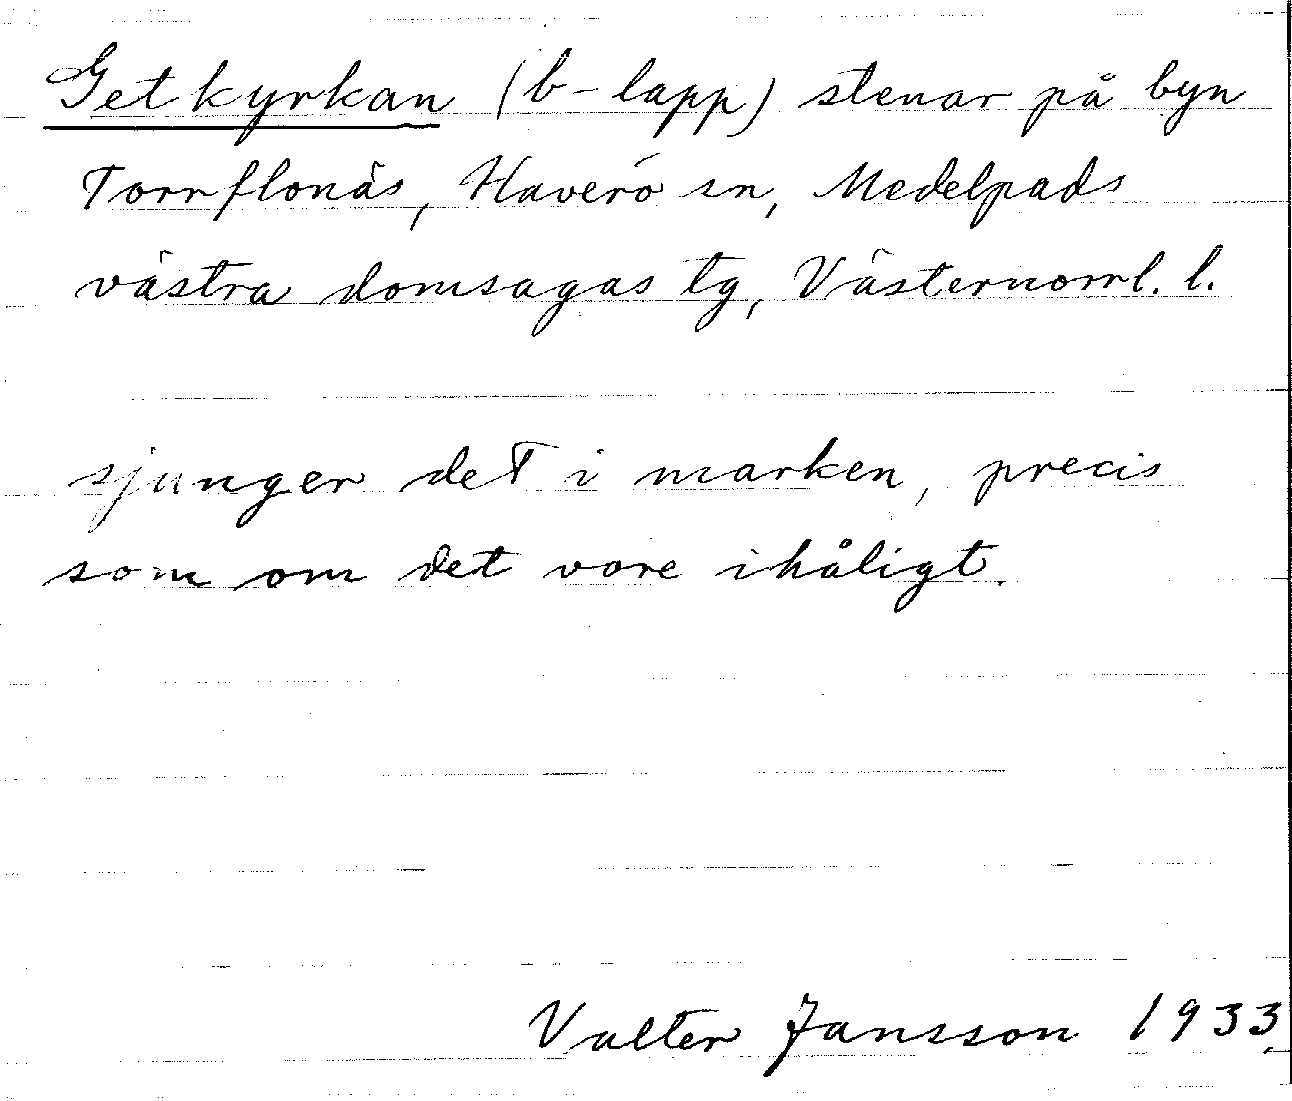 Getkyrkan (b-lapp) stenar på byn
Torrflonäs, Haverö sn, Medelpads
västra domsagas tg, Västernorrl. l.
sjunger det i marken, precis
som om det vore ihåligt.
Valter Jansson 1933.